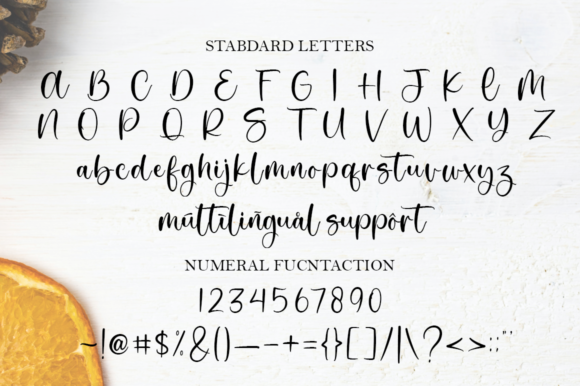 STABDARD LETTERS
A B C D E F G I H J K L M
N O P Q R S T U V W X Y Z
abcdefghijklmnopqrstuvwxyz
múltïlïñguål suppôrt
NUMERAL FUCNTACTION
1234567890
~!@#$%&()—-+={}[]/|\?<>:;"'